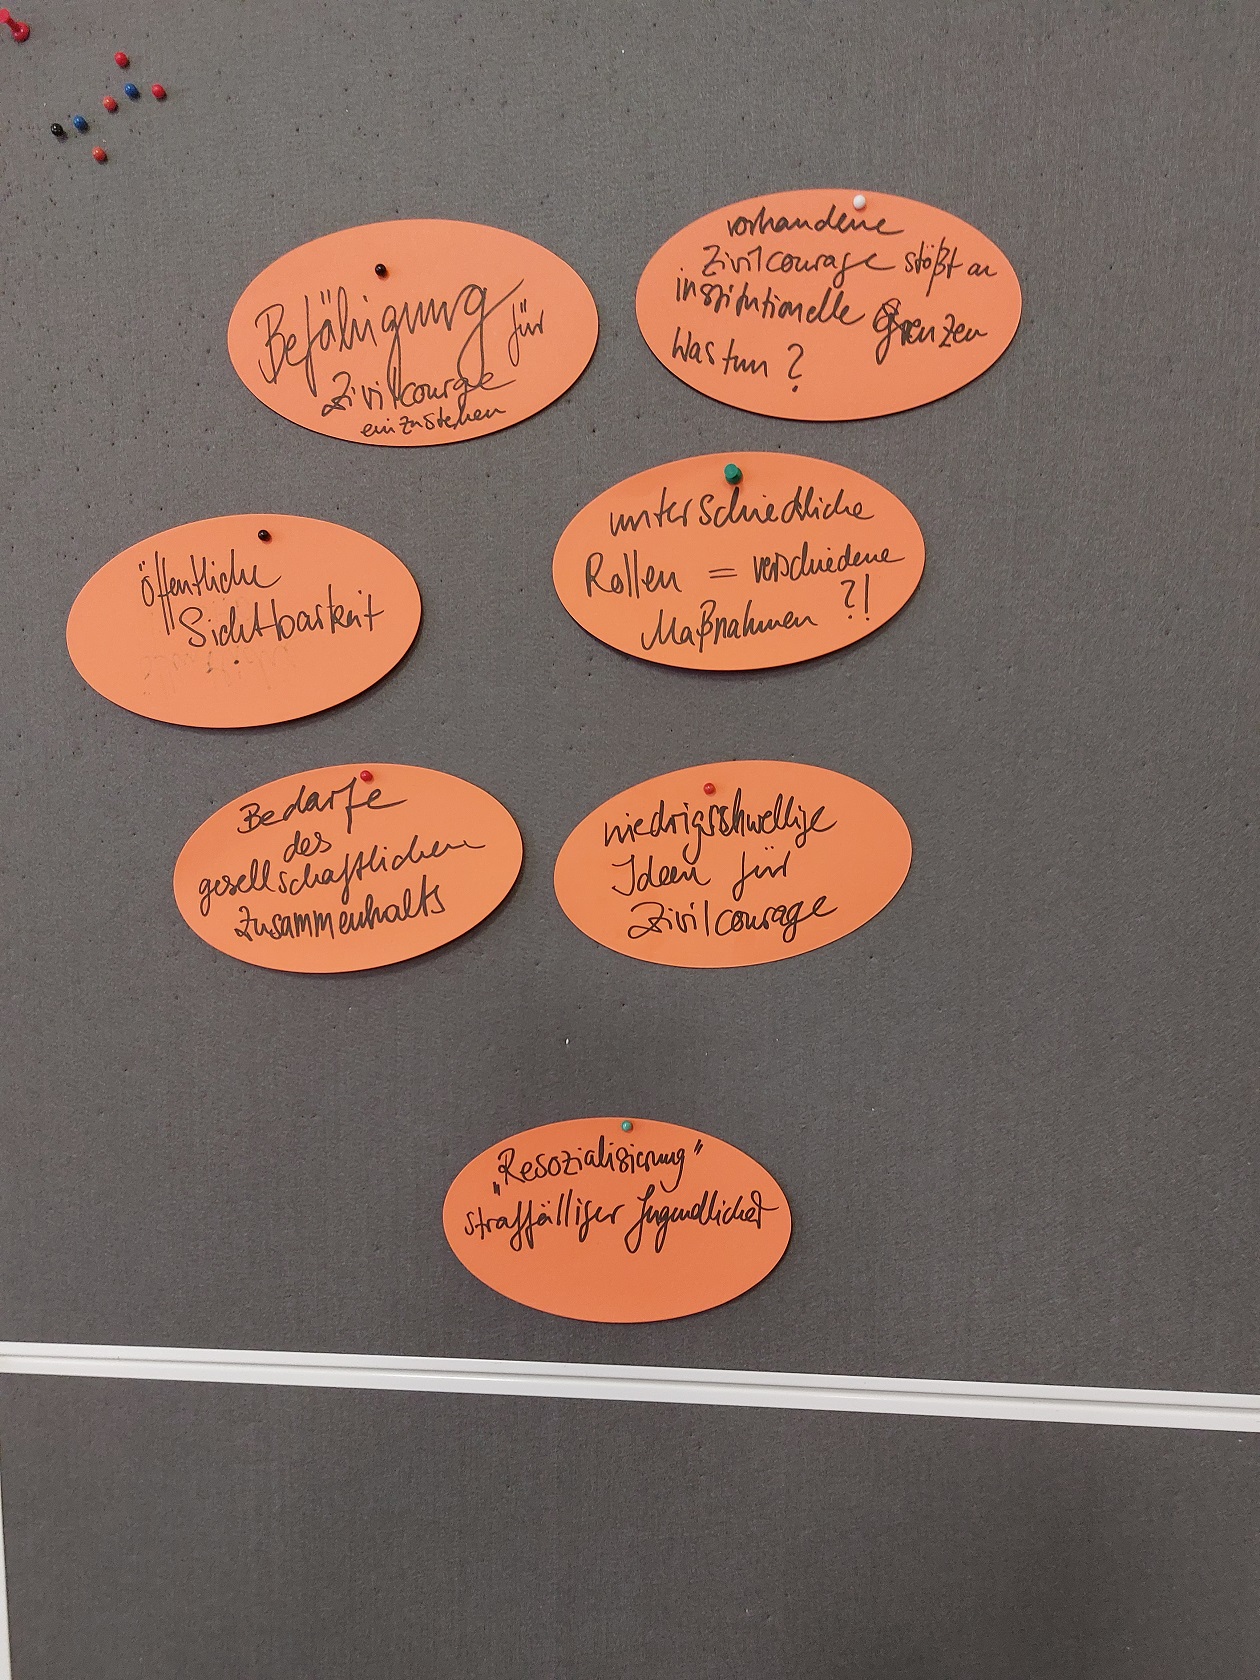 Befähigung
für
Zivilcourage
einzustehen
vorhandene
Zivilcourage stößt an
institutionelle Grenzen
Was tun ?
öffentliche
Sichtbarkeit
unterschiedliche
Rollen = verschiedene
Maßnahmen ?!
Bedarfe
des
gesellschaftlichen
Zusammenhalts
niedrigschwellige
Ideen für
Zivilcourage
„Resozialisierung"
straffälliger Jugendlicher